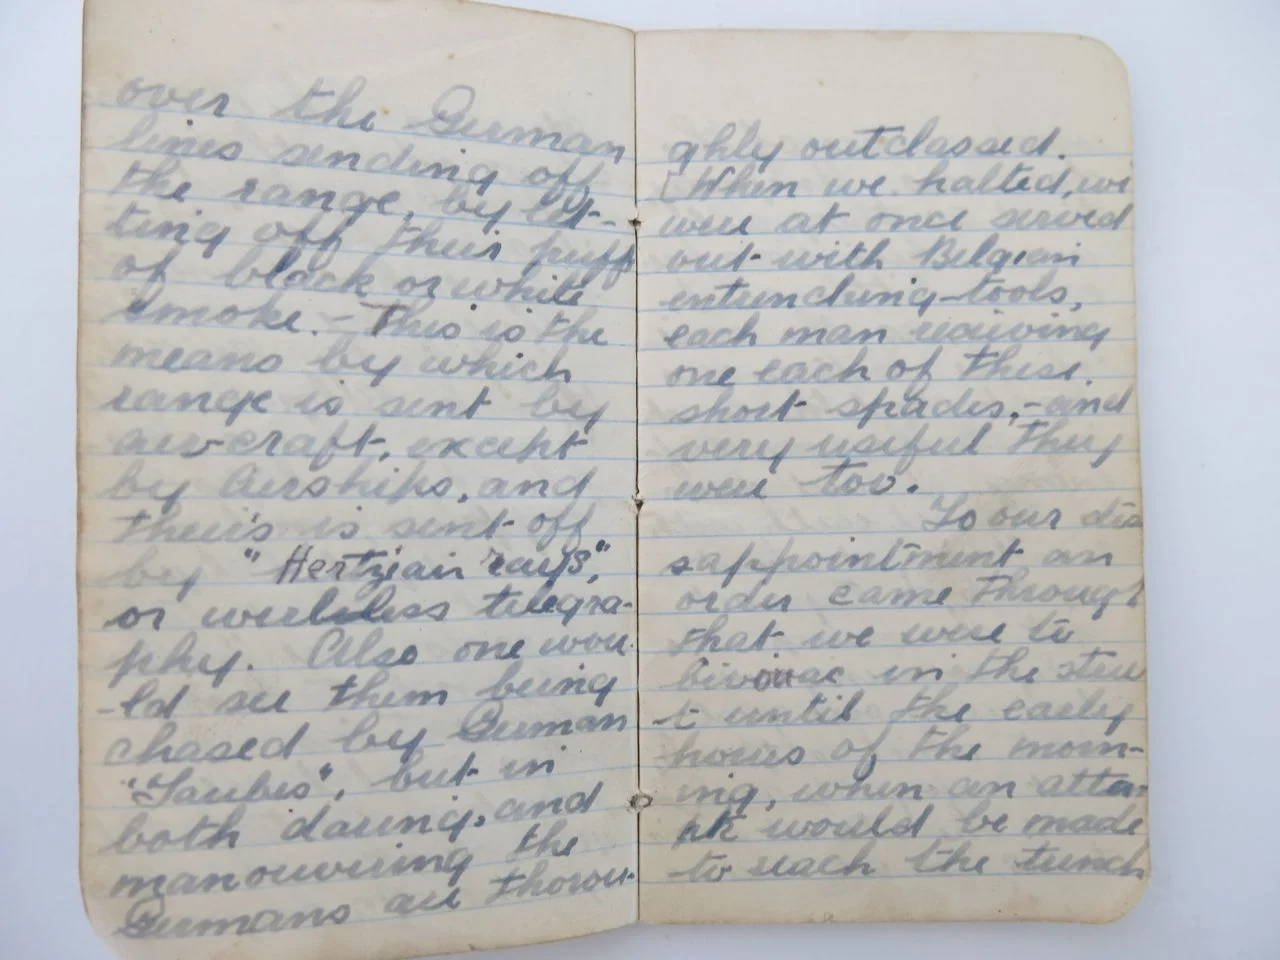 over the German
lines sending off
the range, by let-
ting off their puffs
of black or white
smoke. - This is the
means by which
range is sent by
air-craft, except
by Airships, and
their's is sent off
by "Hertzian rays",
or wireless telegra-
phy. Also one wou-
-ld see them being
chased by German
"Taubes", but in
both daring, and
manouvring the
Germans are thorou-
ghly outclassed.
[When we halted, we
were at once served
out with Belgian
entrenching-tools,
each man receiving
one each of these
short spades, - and
very useful they
were too.
To our dis
sappointment an
order came through
that we were to
bivouac in the stree
t until the early
hours of the morn-
ing, when an atta-
ck would be made
to reach the trench